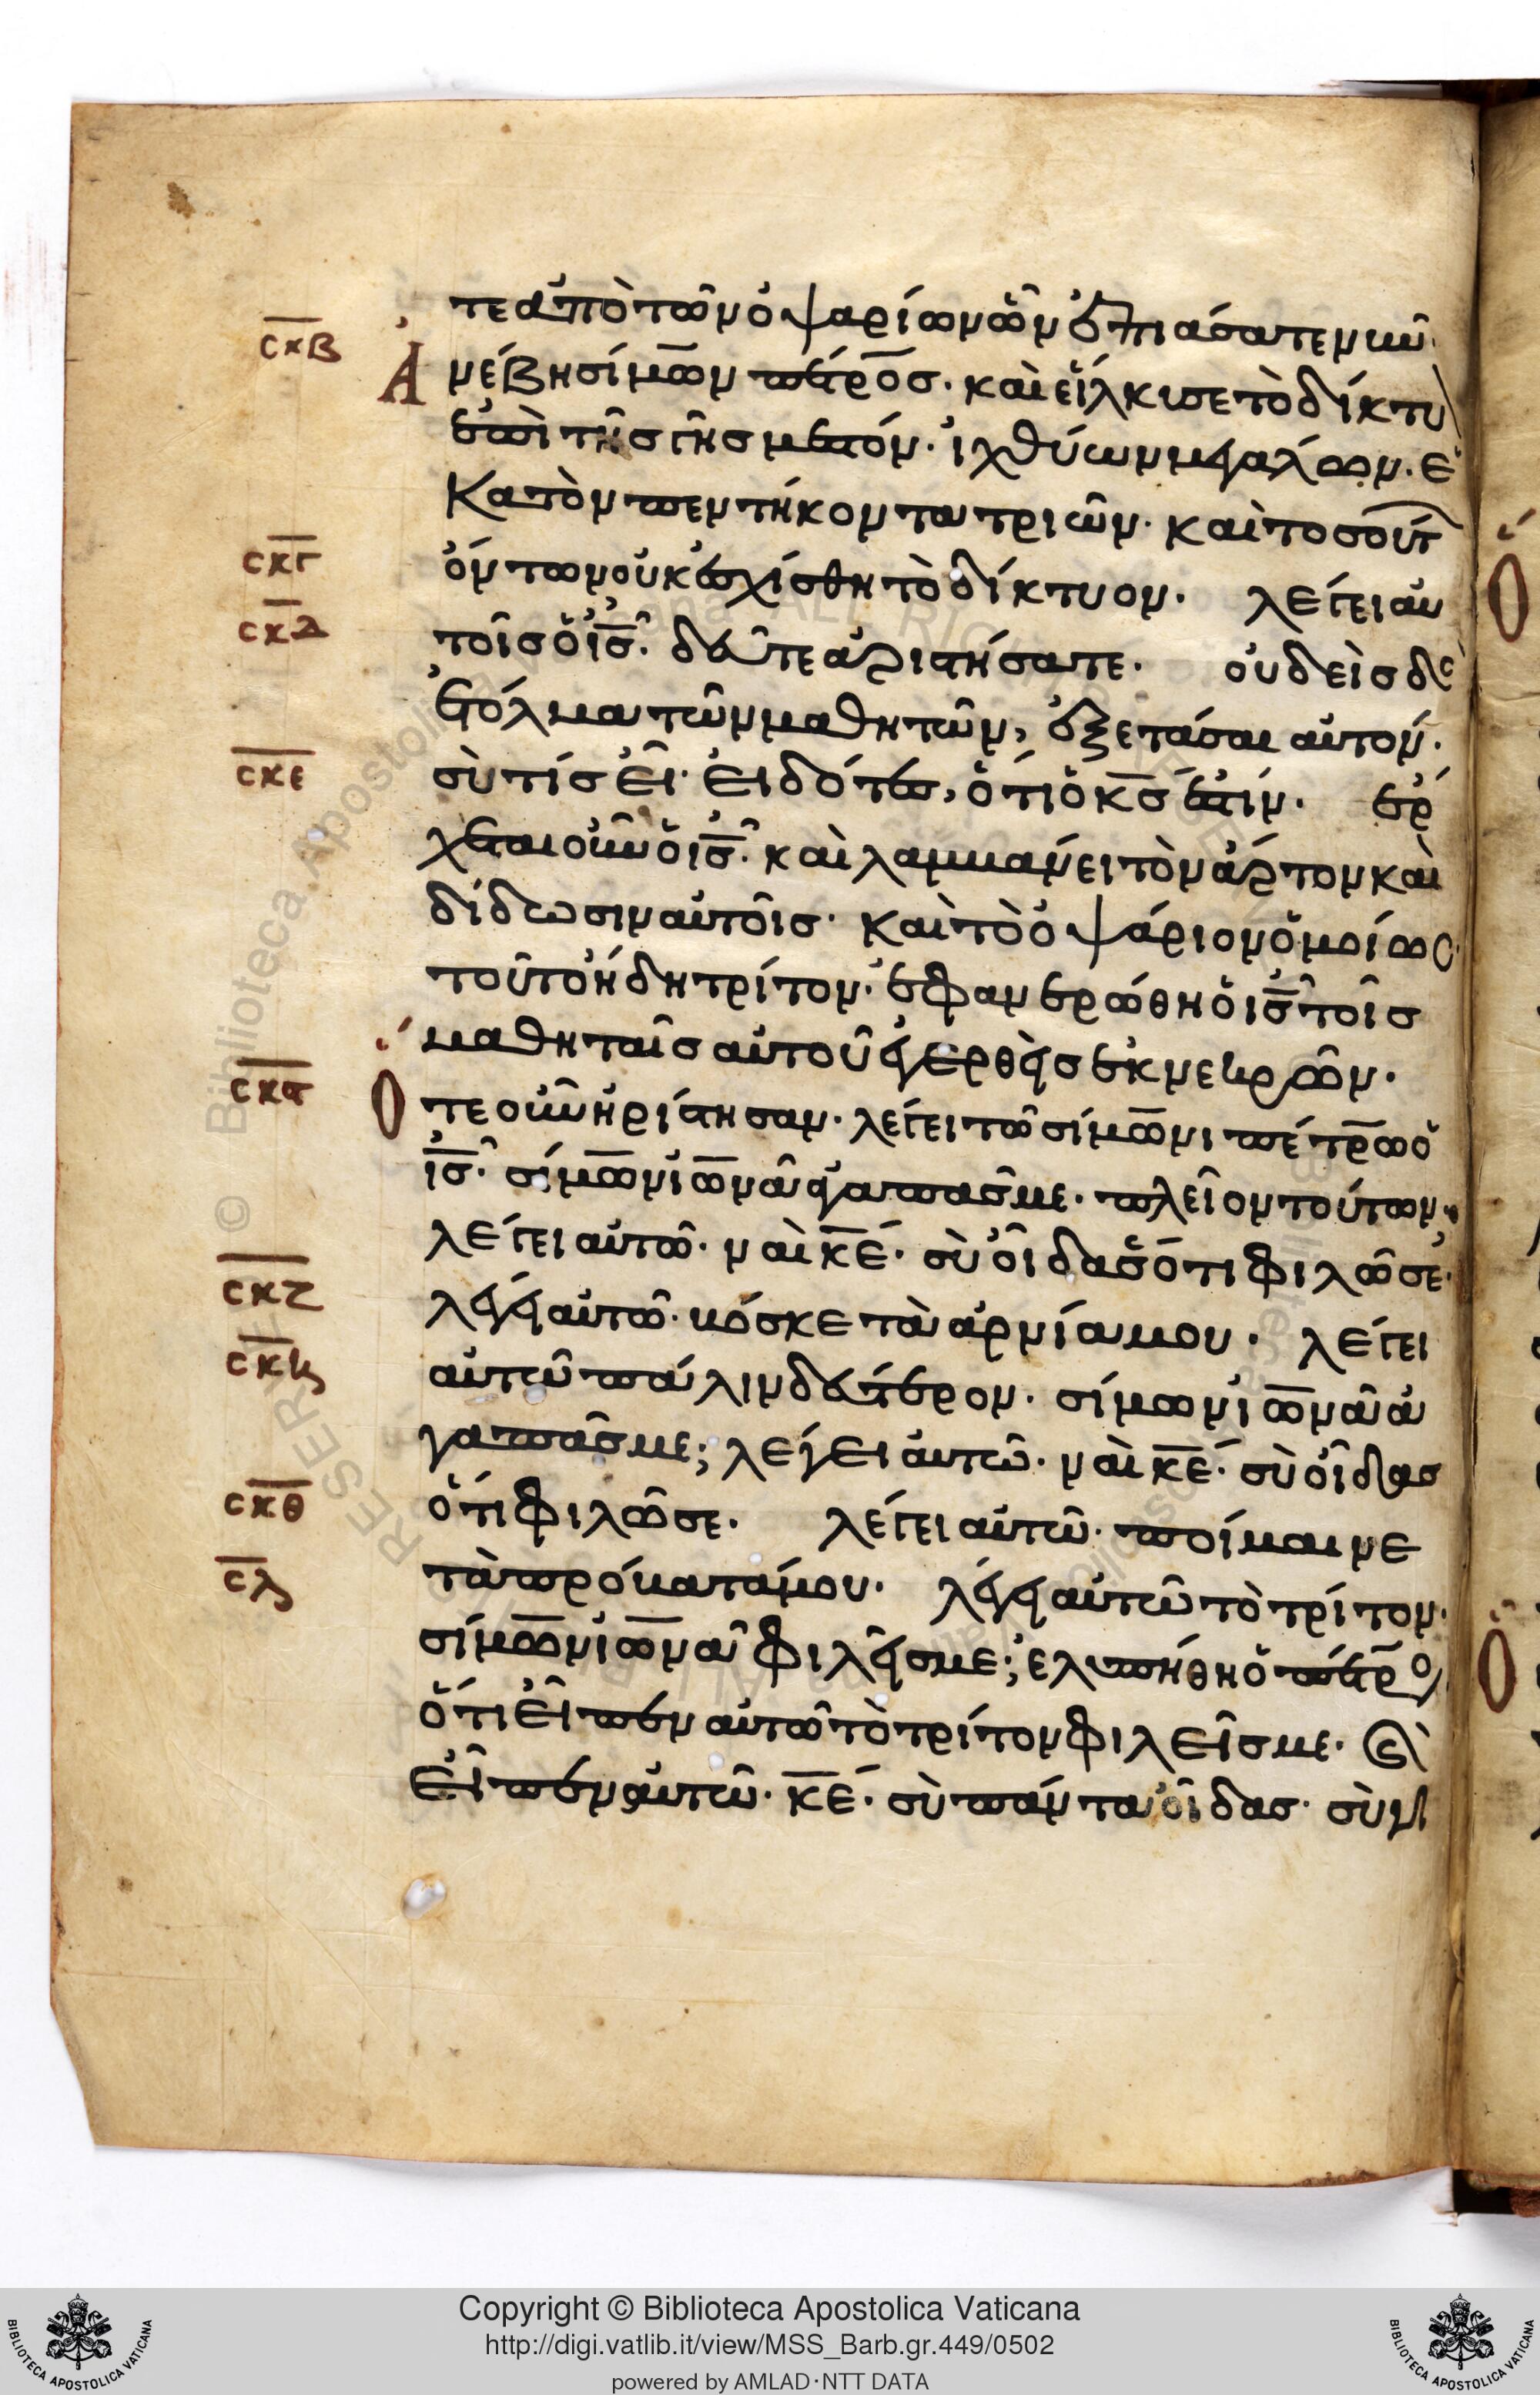 τε ἀπὸ τῶν ὀψαρίων ὧν ἐπιάσατε νῦν·
σκβ
Ἀνέβη σίμων πέτρος· καὶ εἵλκυσε τὸ δίκτυ
ἐπὶ τῆς γῆς μεστόν· ἰχθύων μεγάλων· ἑ
κατὸν πεντήκοντα τριῶν· καὶ τοσούτ
σκγ
ὄντων οὐκ ἐσχίσθη τὸ δίκτυον· λέγει αὐ
σκδ
τοῖς ὁ ις· δεῦτε ἀριστήσατε· οὐδεὶς δὲ
ἐτόλμα τῶν μαθητῶν, ἐξετάσαι αὐτόν·
σκε
σὺ τίς εἶ· εἰδότες, ὅτι ὁ κς ἐστίν· ἔρ
χεται οὖν ὁ ις· καὶ λαμβάνει τὸν ἄρτον καὶ
δίδωσιν αὐτοῖς· καὶ τὸ ὀψάριον ὁμοίως·
τοῦτο ἤδη τρίτον· ἐφανερώθη ὁ ις τοῖς
μαθηταῖς αὐτοῦ ἐγερθεὶς ἐκ νεκρῶν·
σκϛ
Ὅτε οὖν ἠρίστησαν· λέγει τῶ σίμωνι πέτρω ὁ
ις· σίμων ἰωνᾶ ἀγαπᾶς με· πλεῖον τούτων·
λέγει αὐτῶ· ναὶ κε· σὺ οἶδας ὅτι φιλῶ σε·
σκζ
λέγει αὐτῶ· βόσκε τὰ ἀρνία μου· λέγει
σκη
αὐτῶ πάλιν δεύτερον· σίμων ἰωνᾶ ἀ
γαπᾶς με; λέγει αὐτῶ· ναὶ κε· σὺ οἶδας
σκθ
ὅτι φιλῶ σε· λέγει αὐτῶ· ποίμαινε
σλ
τὰ πρόβατά μου· λέγει αὐτῶ τὸ τρίτον·
σίμων ἰωνᾶ φιλεῖς με; ἐλυπήθη ὁ πέτρος
ὅτι εἶπεν αὐτῶ τὸ τρίτον φιλεῖς με· καὶ
εἶπεν αὐτῶ· κε· σὺ πάντα οἶδας· σὺ γι
Copyright © Biblioteca Apostolica Vaticana
http://digi.vatlib.it/view/MSS_Barb.gr.449/0502
powered by AMLAD·NTT DATA